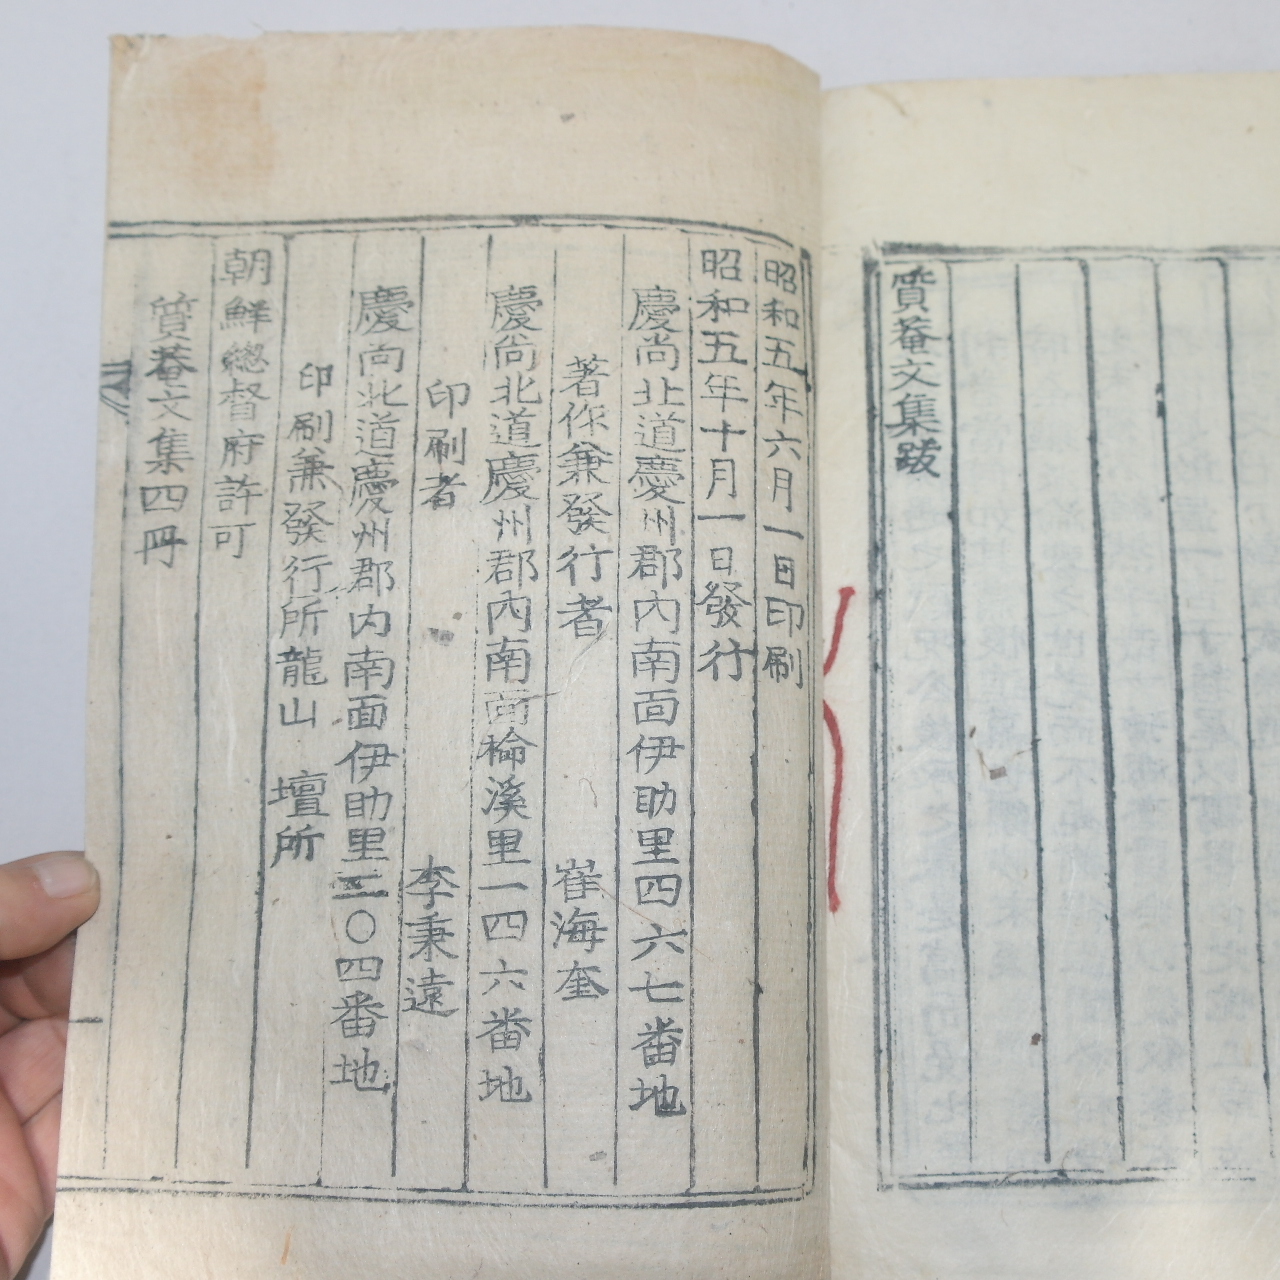 質菴文集跋
昭和五年六月一日印刷
昭和五年十月一日發行
慶尚北道慶州郡內南面伊助里四六七番地
著作兼發行者 崔海奎
慶尚北道慶州郡內南面檢溪里一四六番地
印刷者 李秉遠
慶尚北道慶州郡內南面伊助里三〇四番地
印刷兼發行所龍山 壇所
朝鮮總督府許可
質菴文集四冊